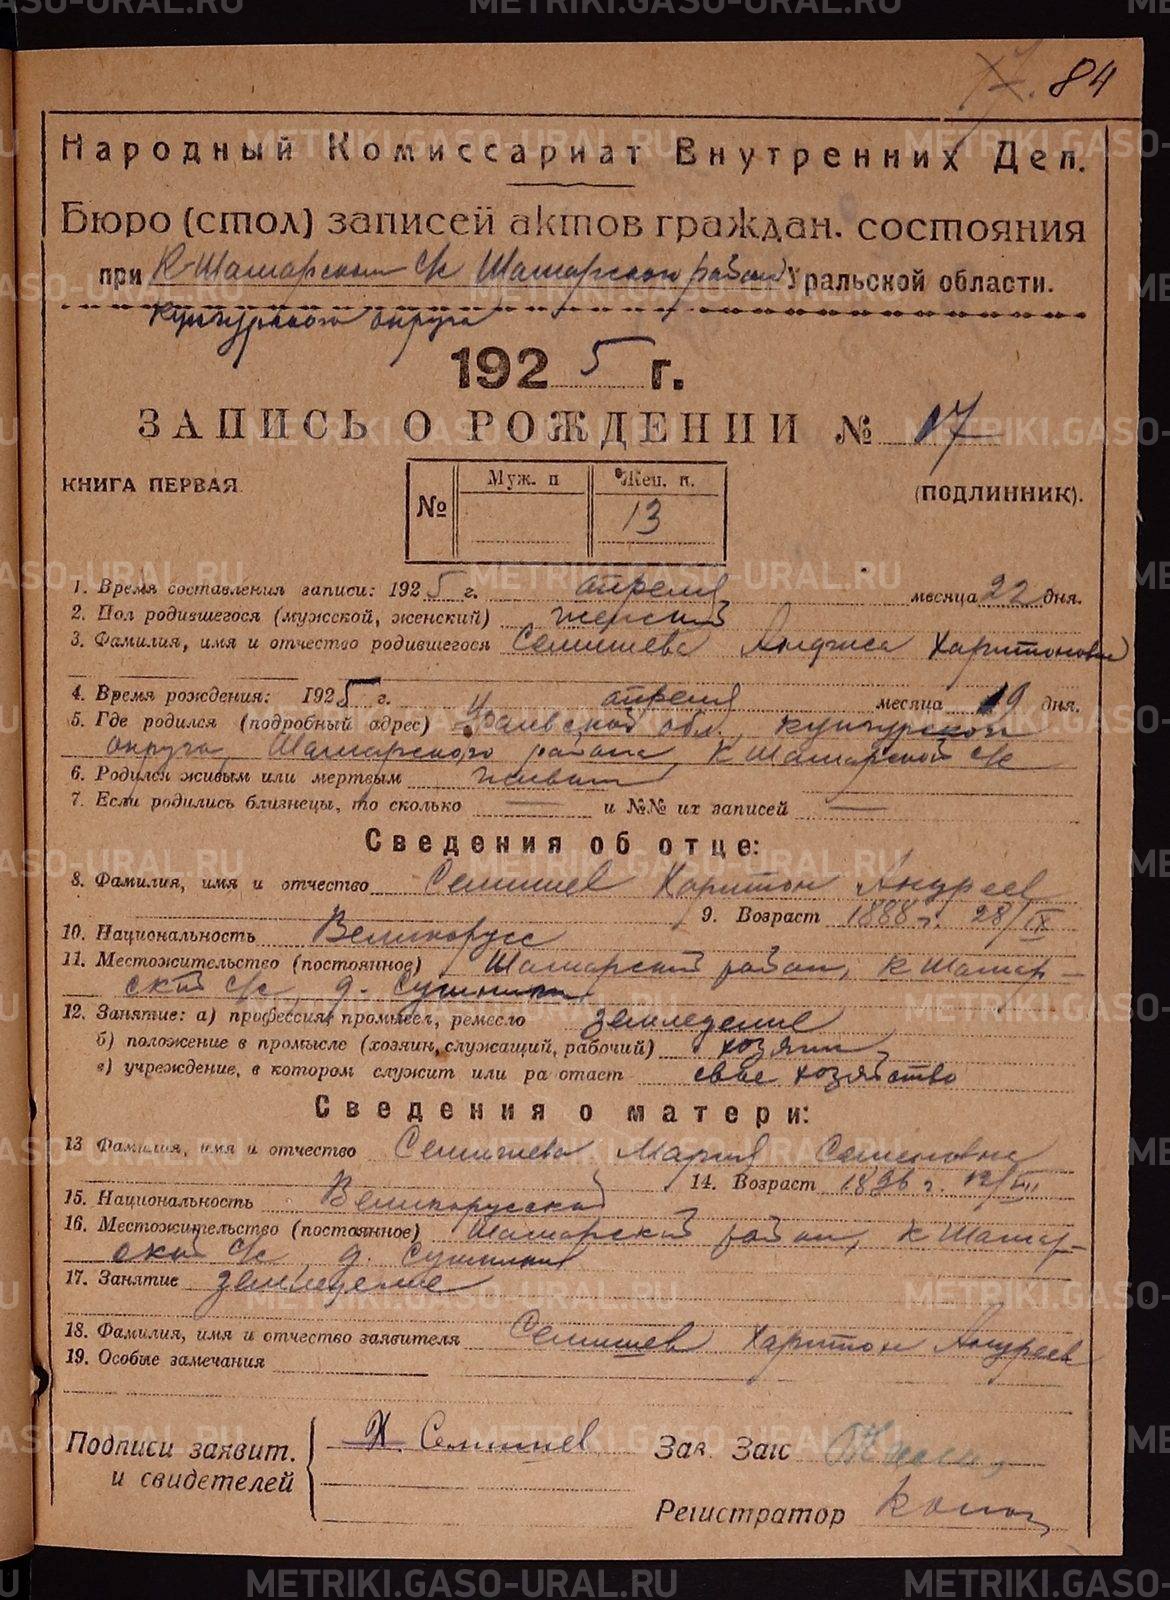 84
Народный Комиссариат Внутренних Дел.
Бюро (стол) записей актов граждан. состояния
при К-Шамарском с/с Шамарского района Уральской области.
Кунгурского округа
1925 г.
ЗАПИСЬ О РОЖДЕНИИ № 17
КНИГА ПЕРВАЯ (ПОДЛИННИК).
№ Муж. п Жен. п.
13
1. Время составления записи: 1925 г. апреля месяца 22 дня.
2. Пол родившегося (мужской, женский) женский
3. Фамилия, имя и отчество родившегося Селишева Анфиса Харитоновна
4. Время рождения: 1925 г. апреля месяца 19 дня.
5. Где родился (подробный адрес) Уральской обл., Кунгурского
округа, Шамарского района, К Шамарской с/с
6. Родился живым или мертвым живым
7. Если родились близнецы, то сколько — и №№ их записей —
Сведения об отце:
8. Фамилия, имя и отчество Селишев Харитон Андреев
9. Возраст 1888 г. 28/IX
10. Национальность Великорусс
11. Местожительство (постоянное) Шамарский район, К Шамар-
ский с/с, д.
12. Занятие: а) профессия, промысел, ремесло земледелие
б) положение в промысле (хозяин, служащий, рабочий) хозяин
в) учреждение, в котором служит или ра отает свое хозяйство
Сведения о матери:
13 Фамилия, имя и отчество Селишева Мария Семеновна
14. Возраст 1896 г.
15. Национальность Великорусская
16. Местожительство (постоянное) Шамарский район, К Шамар-
ский с/с д.
17. Занятие земледелие
18. Фамилия, имя и отчество заявителя Селишев Харитон Андреев
19. Особые замечания
Подписи заявит. и свидетелей Х. Селишев
Зав Загс
Регистратор
METRIKI.GASO-URAL.RU